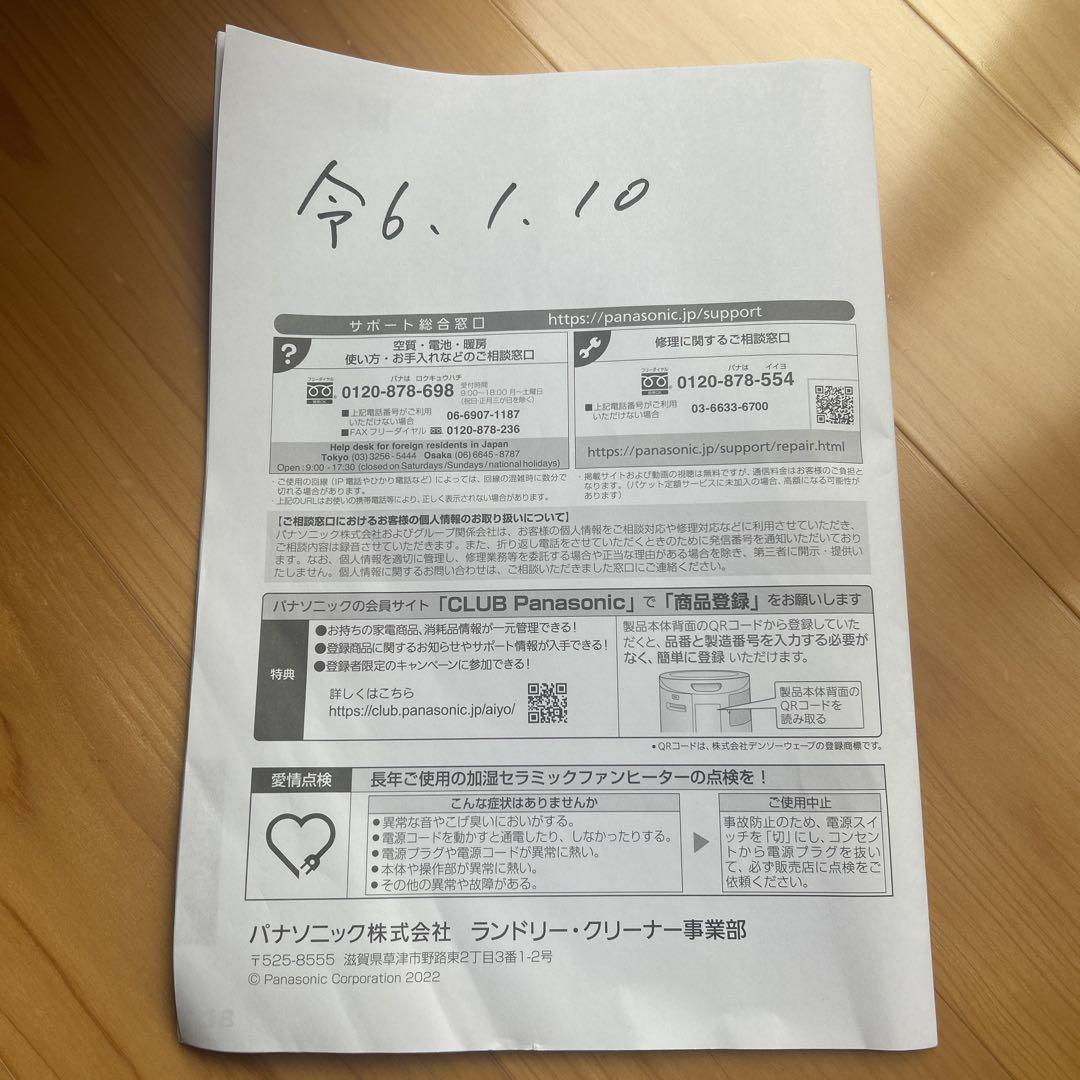 令6.1.10
サポート総合窓口 https://panasonic.jp/support
空質・電池・暖房
使い方・お手入れなどのご相談窓口
フリーダイヤル パナは ロクキュウハチ
0120-878-698
受付時間
9:00～18:00 月～土曜日
(祝日・正月三が日を除く)
■上記電話番号がご利用
いただけない場合 06-6907-1187
■FAX フリーダイヤル 0120-878-236
Help desk for foreign residents in Japan
Tokyo (03) 3256-5444 Osaka (06) 6645-8787
Open : 9:00 - 17:30 (closed on Saturdays / Sundays / national holidays)
修理に関するご相談窓口
フリーダイヤル パナは イイヨ
0120-878-554
■上記電話番号がご利用
いただけない場合 03-6633-6700
https://panasonic.jp/support/repair.html
・ご使用の回線(IP電話やひかり電話など)によっては、回線の混雑時に数分で
切れる場合があります。
・上記のURLはお使いの携帯電話等により、正しく表示されない場合があります。
・掲載サイトおよび動画の視聴は無料ですが、通信料金はお客様のご負担と
なります。(パケット定額サービスに未加入の場合、高額になる可能性が
あります)
【ご相談窓口におけるお客様の個人情報のお取り扱いについて】
パナソニック株式会社およびグループ関係会社は、お客様の個人情報をご相談対応や修理対応などに利用させていただき、
ご相談内容は録音させていただきます。また、折り返し電話をさせていただくときのために発信番号を通知いただいており
ます。なお、個人情報を適切に管理し、修理業務等を委託する場合や正当な理由がある場合を除き、第三者に開示・提供い
たしません。個人情報に関するお問い合わせは、ご相談いただきました窓口にご連絡ください。
パナソニックの会員サイト「CLUB Panasonic」で「商品登録」をお願いします
特典
●お持ちの家電商品、消耗品情報が一元管理できる!
●登録商品に関するお知らせやサポート情報が入手できる!
●登録者限定のキャンペーンに参加できる!
詳しくはこちら
https://club.panasonic.jp/aiyo/
製品本体背面のQRコードから登録していた
だくと、品番と製造番号を入力する必要が
なく、簡単に登録 いただけます。
製品本体背面の
QRコードを
読み取る
●QRコードは、株式会社デンソーウェーブの登録商標です。
愛情点検
長年ご使用の加湿セラミックファンヒーターの点検を!
こんな症状はありませんか
●異常な音やこげ臭いにおいがする。
●電源コードを動かすと通電したり、しなかったりする。
●電源プラグや電源コードが異常に熱い。
●本体や操作部が異常に熱い。
●その他の異常や故障がある。
ご使用中止
事故防止のため、電源スイ
ッチを「切」にし、コンセン
トから電源プラグを抜い
て、必ず販売店に点検をご
依頼ください。
パナソニック株式会社 ランドリー・クリーナー事業部
〒525-8555 滋賀県草津市野路東2丁目3番1-2号
© Panasonic Corporation 2022